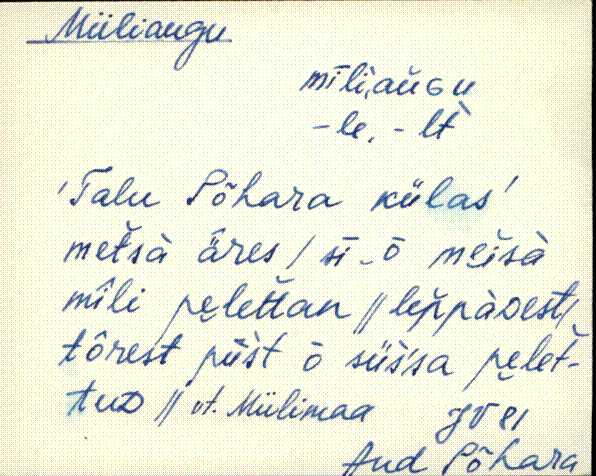 Miiliaugu
mīli̮au̮ɢu
-le, -lt̀
'Talu Põhara külas'
met̆sà äres / sī-ō met̆sà
mîli pelettan // lep̆pàᴅest/
tôrest püšt ō süšsa pelet-
tuᴅ // vt. Miilimaa JV 81
Aud Põhara